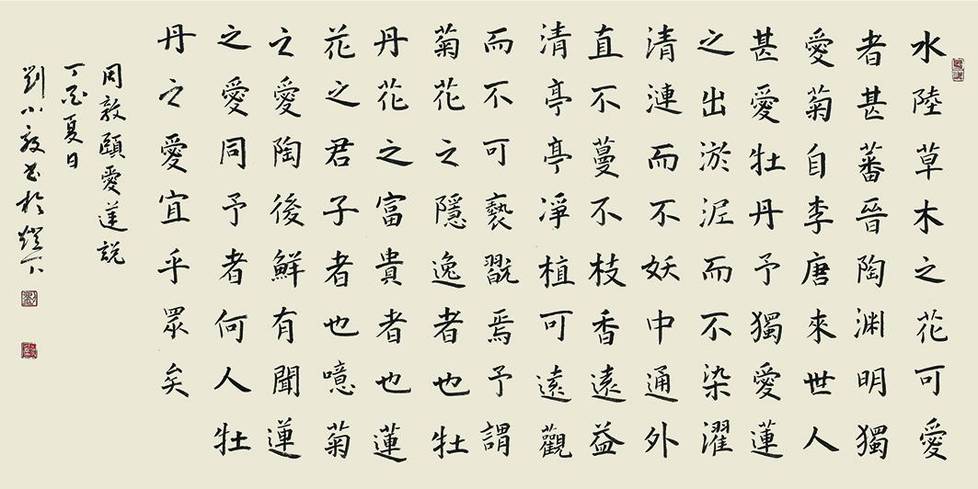 水陸草木之花可愛
者甚蕃晉陶渊明獨
愛菊自李唐來世人
甚愛牡丹予獨愛蓮
之出淤泥而不染濯
清漣而不妖中通外
直不蔓不枝香遠益
清亭亭凈植可遠觀
而不可褻翫焉予謂
菊花之隱逸者也牡
丹花之富貴者也蓮
花之君子者也噫菊
之愛陶後鮮有聞蓮
之愛同予者何人牡
丹之愛宜乎眾矣
周敦頤愛蓮說
丁亥夏日
劉小书於燈下